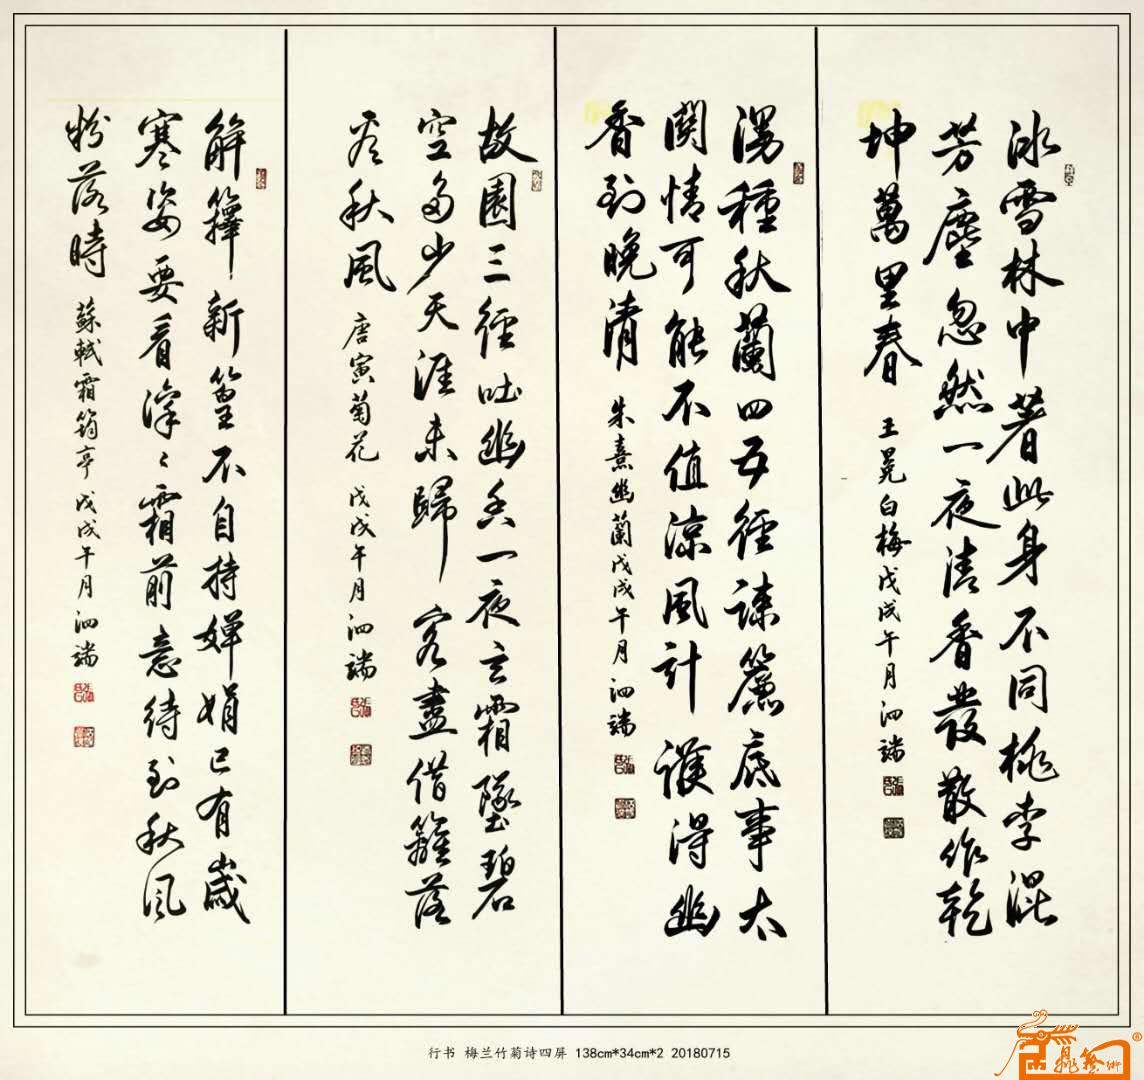 冰雪林中著此身不同桃李混
芳塵忽然一夜清香發散作乾
坤萬里春
王冕白梅戊戌午月泗端
漫種秋蘭四五徑疎簾底事太
関情可能不值涼風計護得幽
香到晚清
朱熹幽蘭戊戌午月泗端
故園三徑吐幽丛一夜玄霜墜碧
空多少天涯未歸客盡借籬落
看秋風
唐寅菊花 戊戌午月泗端
解籜新篁不自持嬋娟已有歲
寒姿要看凜〻霜前意待到秋風
粉落時
蘇軾霜筠亭戊戌午月泗端
行书 梅兰竹菊诗四屏 138cm*34cm*2 20180715